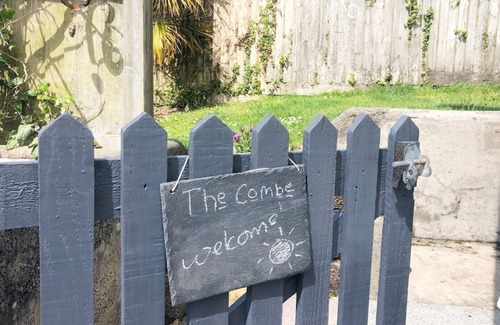 The Combe
welcome